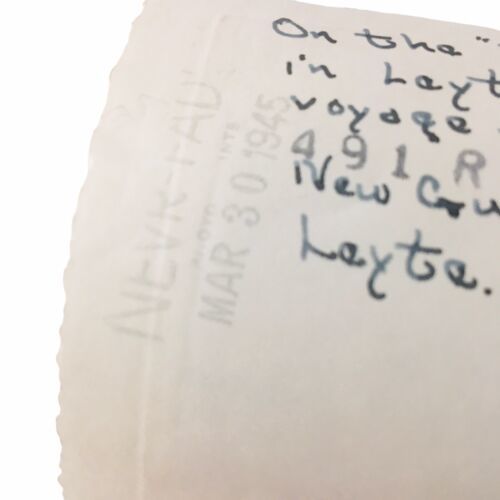 On the "
in Leyt
voyage
491 R
New Gu
Leyte.
MAR 30 1945